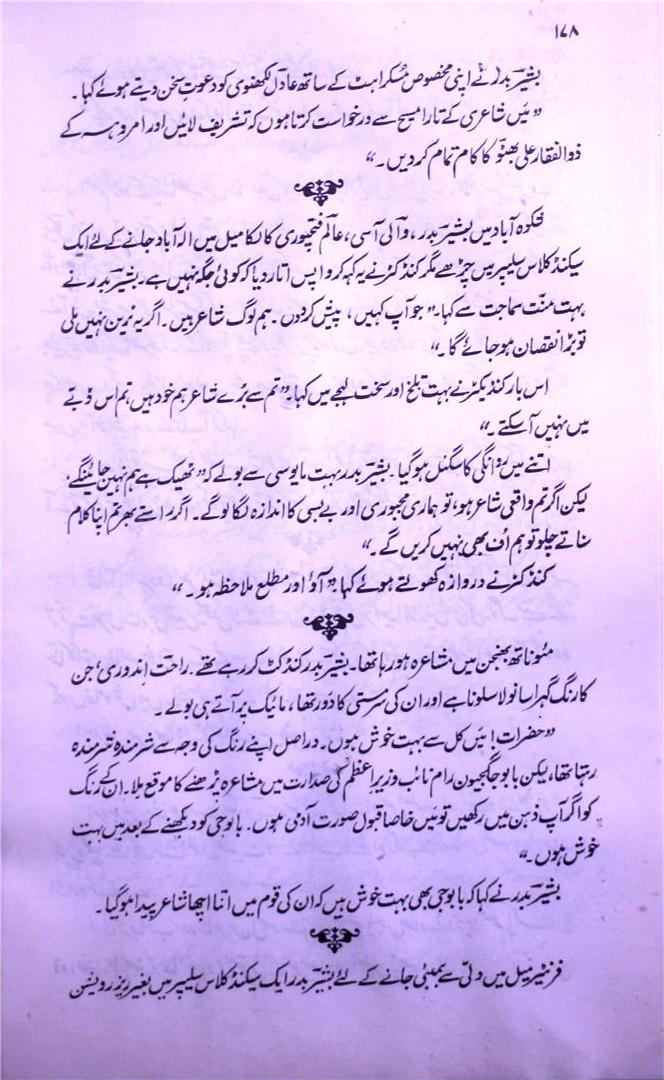 ۱۷۸
بشیر بدر نے اپنی مخصوص مُسکراہٹ کے ساتھ عادل لکھنوی کو دعوتِ سخن دیتے ہوئے کہا۔
”میں شاعری کے تارا مسیح سے درخواست کرتا ہوں کہ تشریف لائیں اور امروہہ کے
ذوالفقار علی بھٹو کا کام تمام کر دیں۔“
شکوہ آباد میں بشیر بدر، والی آسی، عالم فتحپوری کالکا میل میں الہ آباد جانے کے لئے ایک
سیکنڈ کلاس سلیپر میں چڑھے مگر کنڈکٹر نے یہ کہہ کر واپس اتار دیا کہ کوئی جگہ نہیں ہے۔ بشیر بدر نے
بہت منّت سماجت سے کہا۔ ”جو آپ کہیں، پیش کر دوں۔ ہم لوگ شاعر ہیں۔ اگر یہ ٹرین نہیں ملی
تو بڑا نقصان ہو جائے گا۔“
اس بار کنڈیکٹر نے بہت تلخ اور سخت لہجے میں کہا۔ ”تم سے بُرے شاعر ہم خود ہیں، تم اس ڈبے
میں نہیں آ سکتے۔“
اتنے میں روانگی کا سگنل ہو گیا۔ بشیر بدر بہت مایوسی سے بولے کہ ”ٹھیک ہے ہم نہیں جائینگے
لیکن اگر تم واقعی شاعر ہو، تو ہماری مجبوری اور بے بسی کا اندازہ لگا لو گے۔ اگر راستے بھر تم اپنا کلام
سناتے چلو تو ہم اُف بھی نہیں کریں گے۔“
کنڈکٹر نے دروازہ کھولتے ہوئے کہا ”آؤ اور مطلع ملاحظہ ہو۔“
مئو ناتھ بھنجن میں مشاعرہ ہو رہا تھا۔ بشیر بدر کنڈکٹ کر رہے تھے۔ راحت اندوری، جن
کا رنگ گہرا سانولا سلونا ہے اور ان کی سرمستی کا دَور تھا، مائیک پر آتے ہی بولے۔
”حضرات! میں کل سے بہت خوش ہوں۔ دراصل اپنے رنگ کی وجہ سے شرمندہ شرمندہ
رہتا تھا، لیکن بابو جگجیون رام نائب وزیر اعظم کی صدارت میں مشاعرہ پڑھنے کا موقع ملا۔ ان کے رنگ
کو اگر آپ ذہن میں رکھیں تو میں خاصا قبول صورت آدمی ہوں۔ بابو جی کو دیکھنے کے بعد میں بہت
خوش ہوں۔“
بشیر بدر نے کہا کہ بابو جی بھی بہت خوش ہیں کہ ان کی قوم میں اتنا اچھا شاعر پیدا ہو گیا۔
فرنٹیر میل میں دلّی سے بمبئی جانے کے لئے بشیر بدر ایک سیکنڈ کلاس سلیپر میں بغیر ریزرویشن